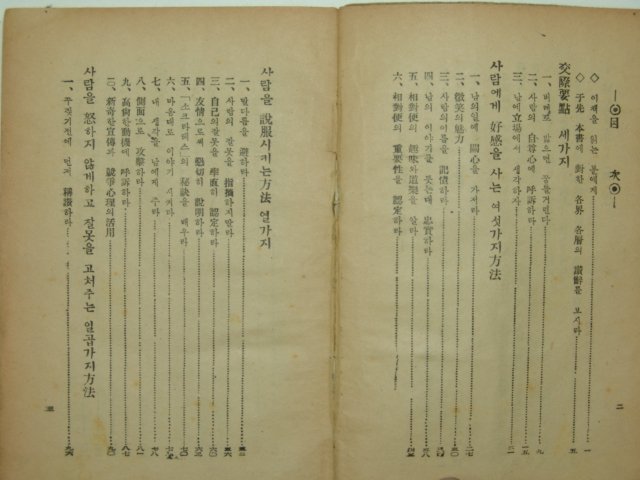 目次
◇ 이책을 읽는 분에게 一
◇ 于先 本書에 對한 各界 各層의 讚辭를 보시라 五
交際要點 세가지
一、
二、사람의 自尊心에 呼訴하라 一五
三、남에 立場에서 생각하자 二一
사람에게 好感을 사는 여섯가지方法
一、남의일에 關心을 가져라 二七
二、微笑의魅力 三〇
三、사람의이름을 記憶하라 三四
四、남의 이야기를 듯는대 忠實하라 三八
五、相對便의 趣味와道樂을 알라
六、相對便의 重要性을 認定하라
二
사람을 說服시키는方法 열가지
一、말다툼을 避하라
二、사람의 잘못을 指摘하지말라 五六
三、自己의잘못을 率直히 認定하라
四、友情으로써 懇切히 說明하라 六三
五、「소크라테스」의 秘訣을 배우라
六、마음대로 이야기 시켜라
七、내 생각을 남에게 주라 七八
八、側面으로 攻擊하라 八一
九、高尙한動機에 呼訴하라 八七
一〇、新奇한宣傳과 競爭心理의活用
사람을 怒하지 않게하고 잘못을 고처주는 일곱가지方法
一、꾸짓기전에 먼저 稱讚하라 九六
三